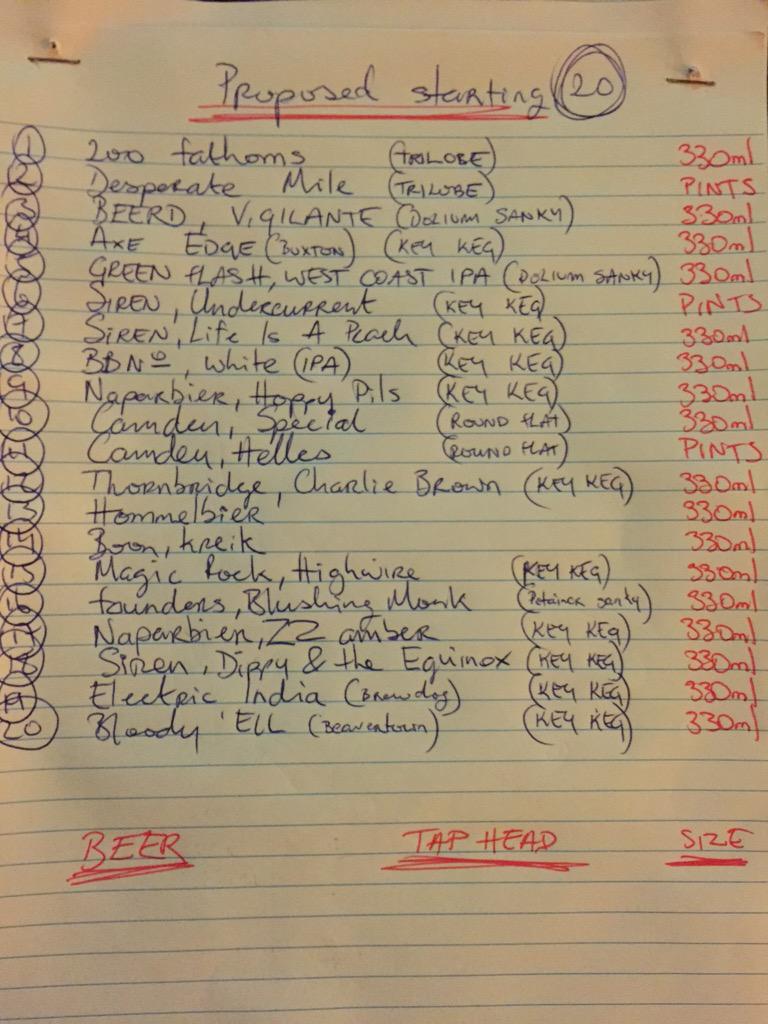 Proposed starting 20
1 200 fathoms (TRILOBE) 330ml
2 Desperate Mile (TRILOBE) PINTS
3 BEERD, VIGILANTE (DOLIUM SANKY) 330ml
4 AXE EDGE (BUXTON) (KEY KEG) 330ml
5 GREEN FLASH, WEST COAST IPA (DOLIUM SANKY) 330ml
6 SIREN, Undercurrent (KEY KEG) PINTS
7 SIREN, Life Is A Peach (KEY KEG) 330ml
8 BBNº, White (IPA) (KEY KEG) 330ml
9 Naparbier, Hoppy Pils (KEY KEG) 330ml
10 Camden, Special (ROUND FLAT) 330ml
11 Camden, Helles (ROUND FLAT) PINTS
12 Thornbridge, Charlie Brown (KEY KEG) 330ml
13 Hommelbier 330ml
14 Boon, kreik 330ml
15 Magic Rock, Highwire (KEY KEG) 330ml
16 founders, Blushing Monk sanky) 330ml
17 Naparbier, ZZ amber (KEY KEG) 330ml
18 Siren, Dippy & the Equinox (KEY KEG) 330ml
19 Electric India (Brewdog) (KEY KEG) 330ml
20 Bloody 'Ell (Beavertown) (KEY KEG) 330ml
BEER TAP HEAD SIZE